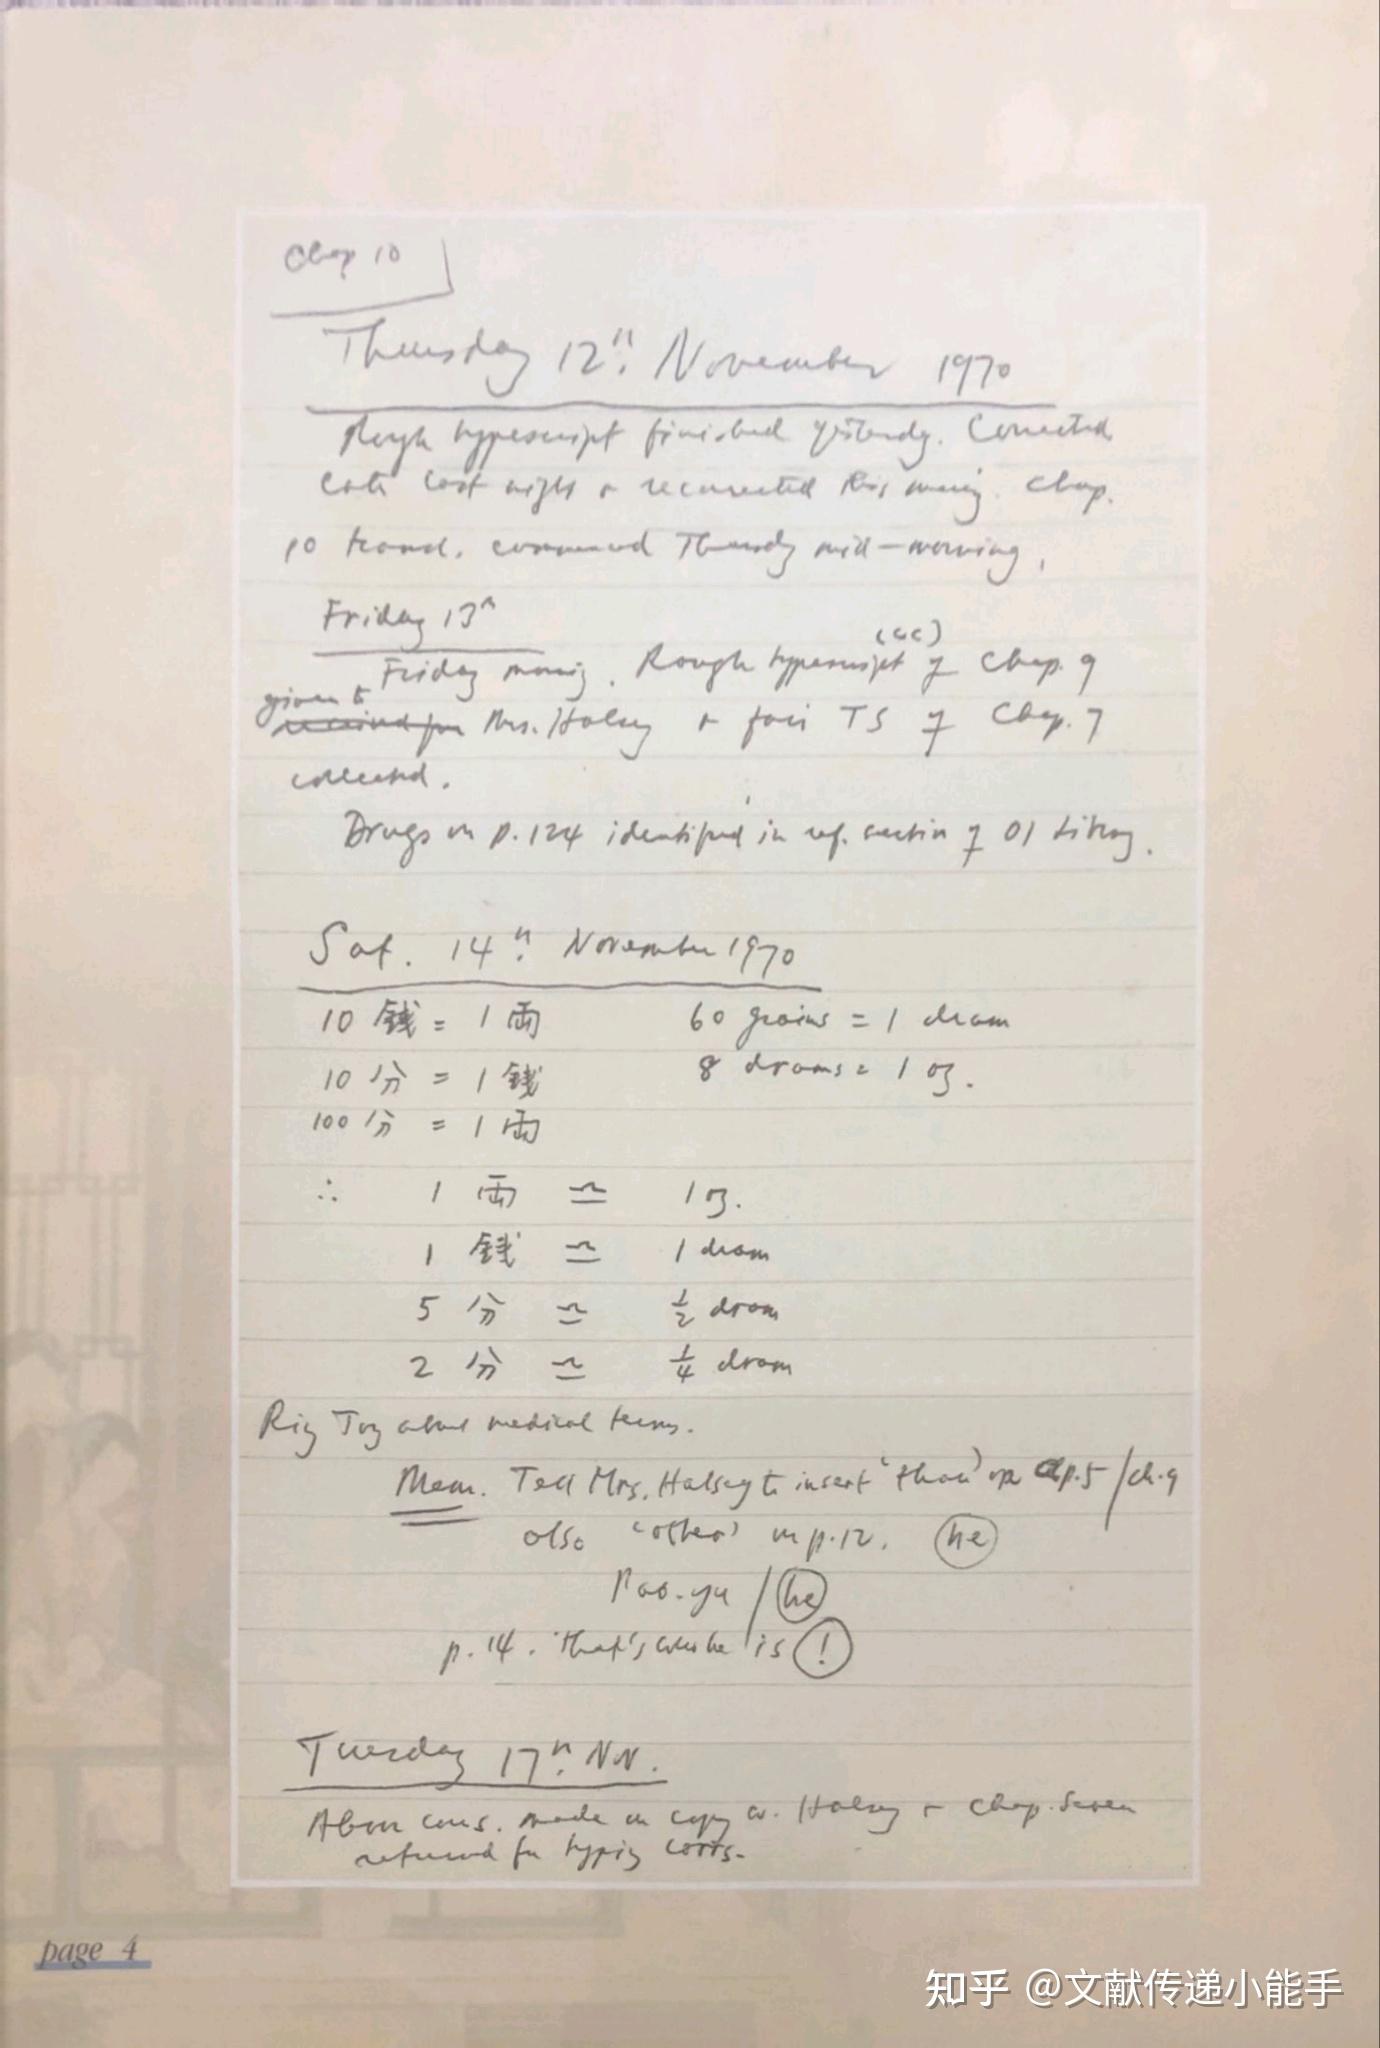 Chap 10
Thursday 12th. November 1970
Rough typescript finished yesterday. Corrected
late last night + recorrected this morning. Chap.
10 transl. commenced Thursday mid-morning.
Friday 13th
Friday morning. Rough typescript (cc) of Chap. 9
given to received for Mrs. Halsey + fair TS of Chap. 7
collected.
Drugs on p.124 identified in ref. section of OI Library.
Sat. 14th. November 1970
10 錢 = 1 両 60 grains = 1 dram
10 分 = 1 錢 8 drams = 1 oz.
100 分 = 1 両
∴ 1 両 ≏ 1 oz.
1 錢 ≏ 1 dram
5 分 ≏ ½ dram
2 分 ≏ ¼ dram
Ring Tony about medical terms.
Mem. Tell Mrs. Halsey to insert 'than' on p.5/ch.9
also 'other' on p.12. he
Pao-yu / he
p.14. 'that's is !
Tuesday 17th. Nov.
Above corrs. made on copy w. Halsey + Chap. Seven
returned for typing corrs.
page 4
知乎 @文献传递小能手